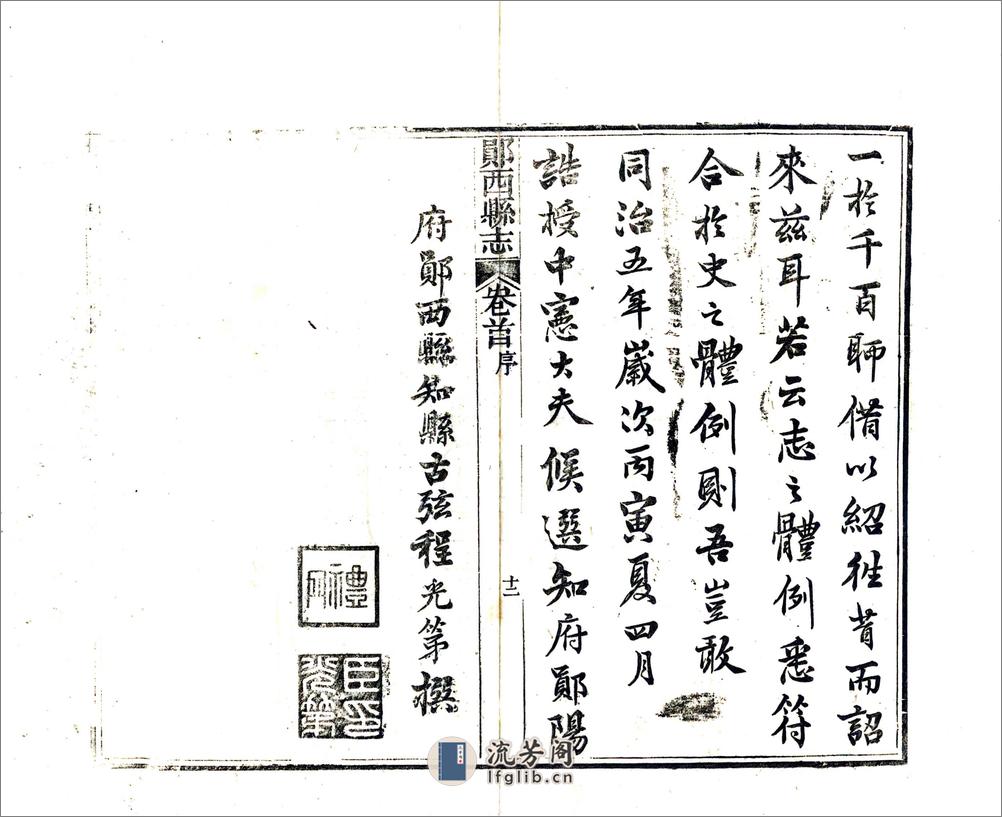 一於千百聊借以紹往昔而詔
來茲耳若云志之體例悉符
合於史之體例則吾豈敢
同治五年歲次丙寅夏四月
誥授中憲大夫候選知府鄖陽
鄖西縣志 卷首 序 十二
府鄖西縣知縣古弦程光第撰
臣光第印
流芳阁
lfglib.cn